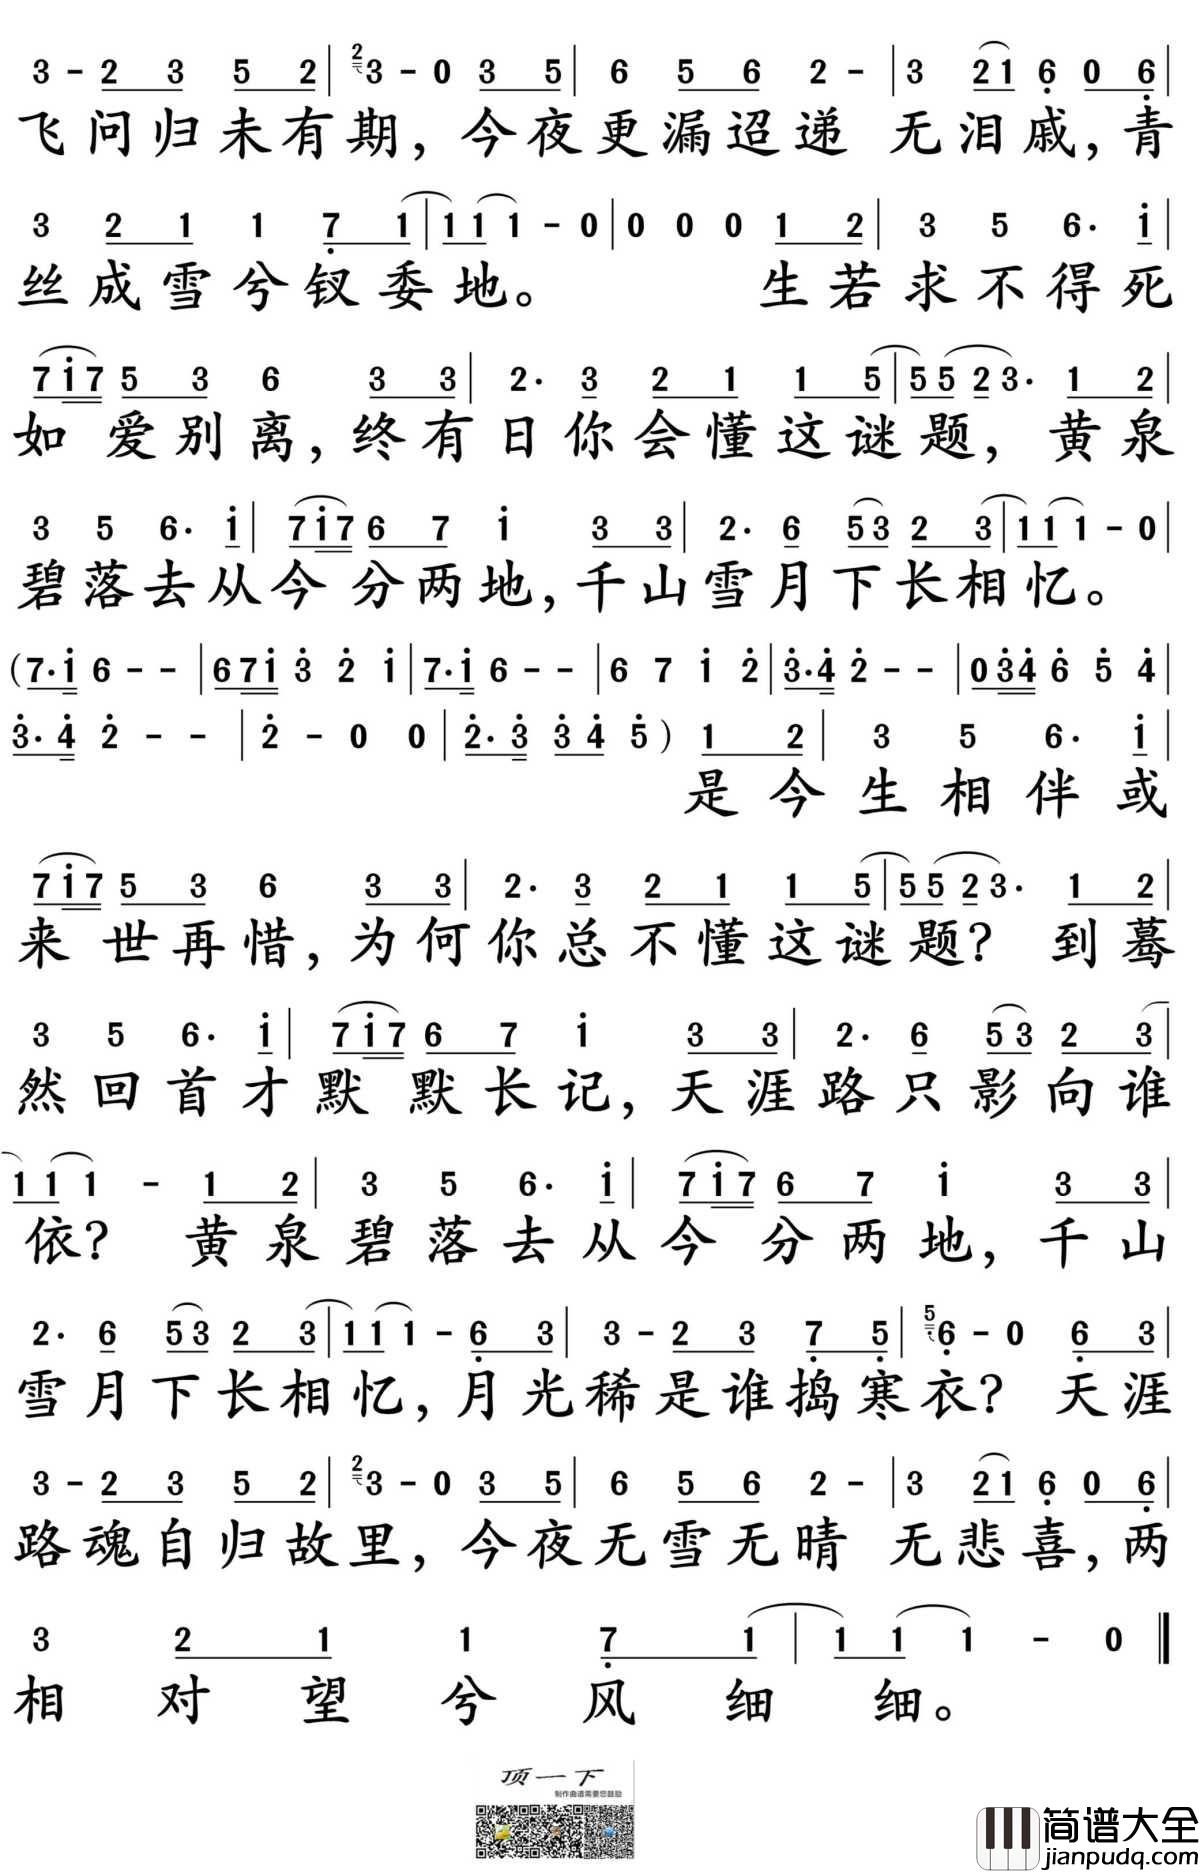 3 - 2 3 5 2 | 2 3 - 0 3 5 | 6 5 6 2 - | 3 2 1 6 0 6 |
飞问归未有期，今夜更漏迢递 无泪戚，青
3 2 1 1 7 1 | 1 1 1 - 0 | 0 0 0 1 2 | 3 5 6· i |
丝成雪兮钗委地。 生若求不得死
7 i 7 5 3 6 3 3 | 2· 3 2 1 1 5 | 5 5 2 3· 1 2 |
如 爱别离，终有日你会懂这谜题，黄泉
3 5 6· i | 7 i 7 6 7 i 3 3 | 2· 6 5 3 2 3 | 1 1 1 - 0 |
碧落去从今分两地，千山雪月下长相忆。
(7·i 6 - - | 6 7 i 3 2 i | 7·i 6 - - | 6 7 i 2 | 3·4 2 - - | 0 3 4 6 5 4 |
3·4 2 - - | 2 - 0 0 | 2·3 3 4 5) 1 2 | 3 5 6· i |
是今生相伴或
7 i 7 5 3 6 3 3 | 2· 3 2 1 1 5 | 5 5 2 3· 1 2 |
来 世再惜，为何你总不懂这谜题？ 到蓦
3 5 6· i | 7 i 7 6 7 i 3 3 | 2· 6 5 3 2 3 |
然回首才默 默长记，天涯路只影向谁
1 1 1 - 1 2 | 3 5 6· i | 7 i 7 6 7 i 3 3 |
依？ 黄泉碧落去从今 分两地，千山
2· 6 5 3 2 3 | 1 1 1 - 6 3 | 3 - 2 3 7 5 | 5 6 - 0 6 3 |
雪月下长相忆，月光稀是谁捣寒衣？ 天涯
3 - 2 3 5 2 | 2 3 - 0 3 5 | 6 5 6 2 - | 3 2 1 6 0 6 |
路魂自归故里，今夜无雪无晴 无悲喜，两
3 2 1 1 7 1 | 1 1 1 - 0 ‖
相对望兮风细细。
顶一下
制作曲谱需要您鼓励
简谱大全
jianpudq.com